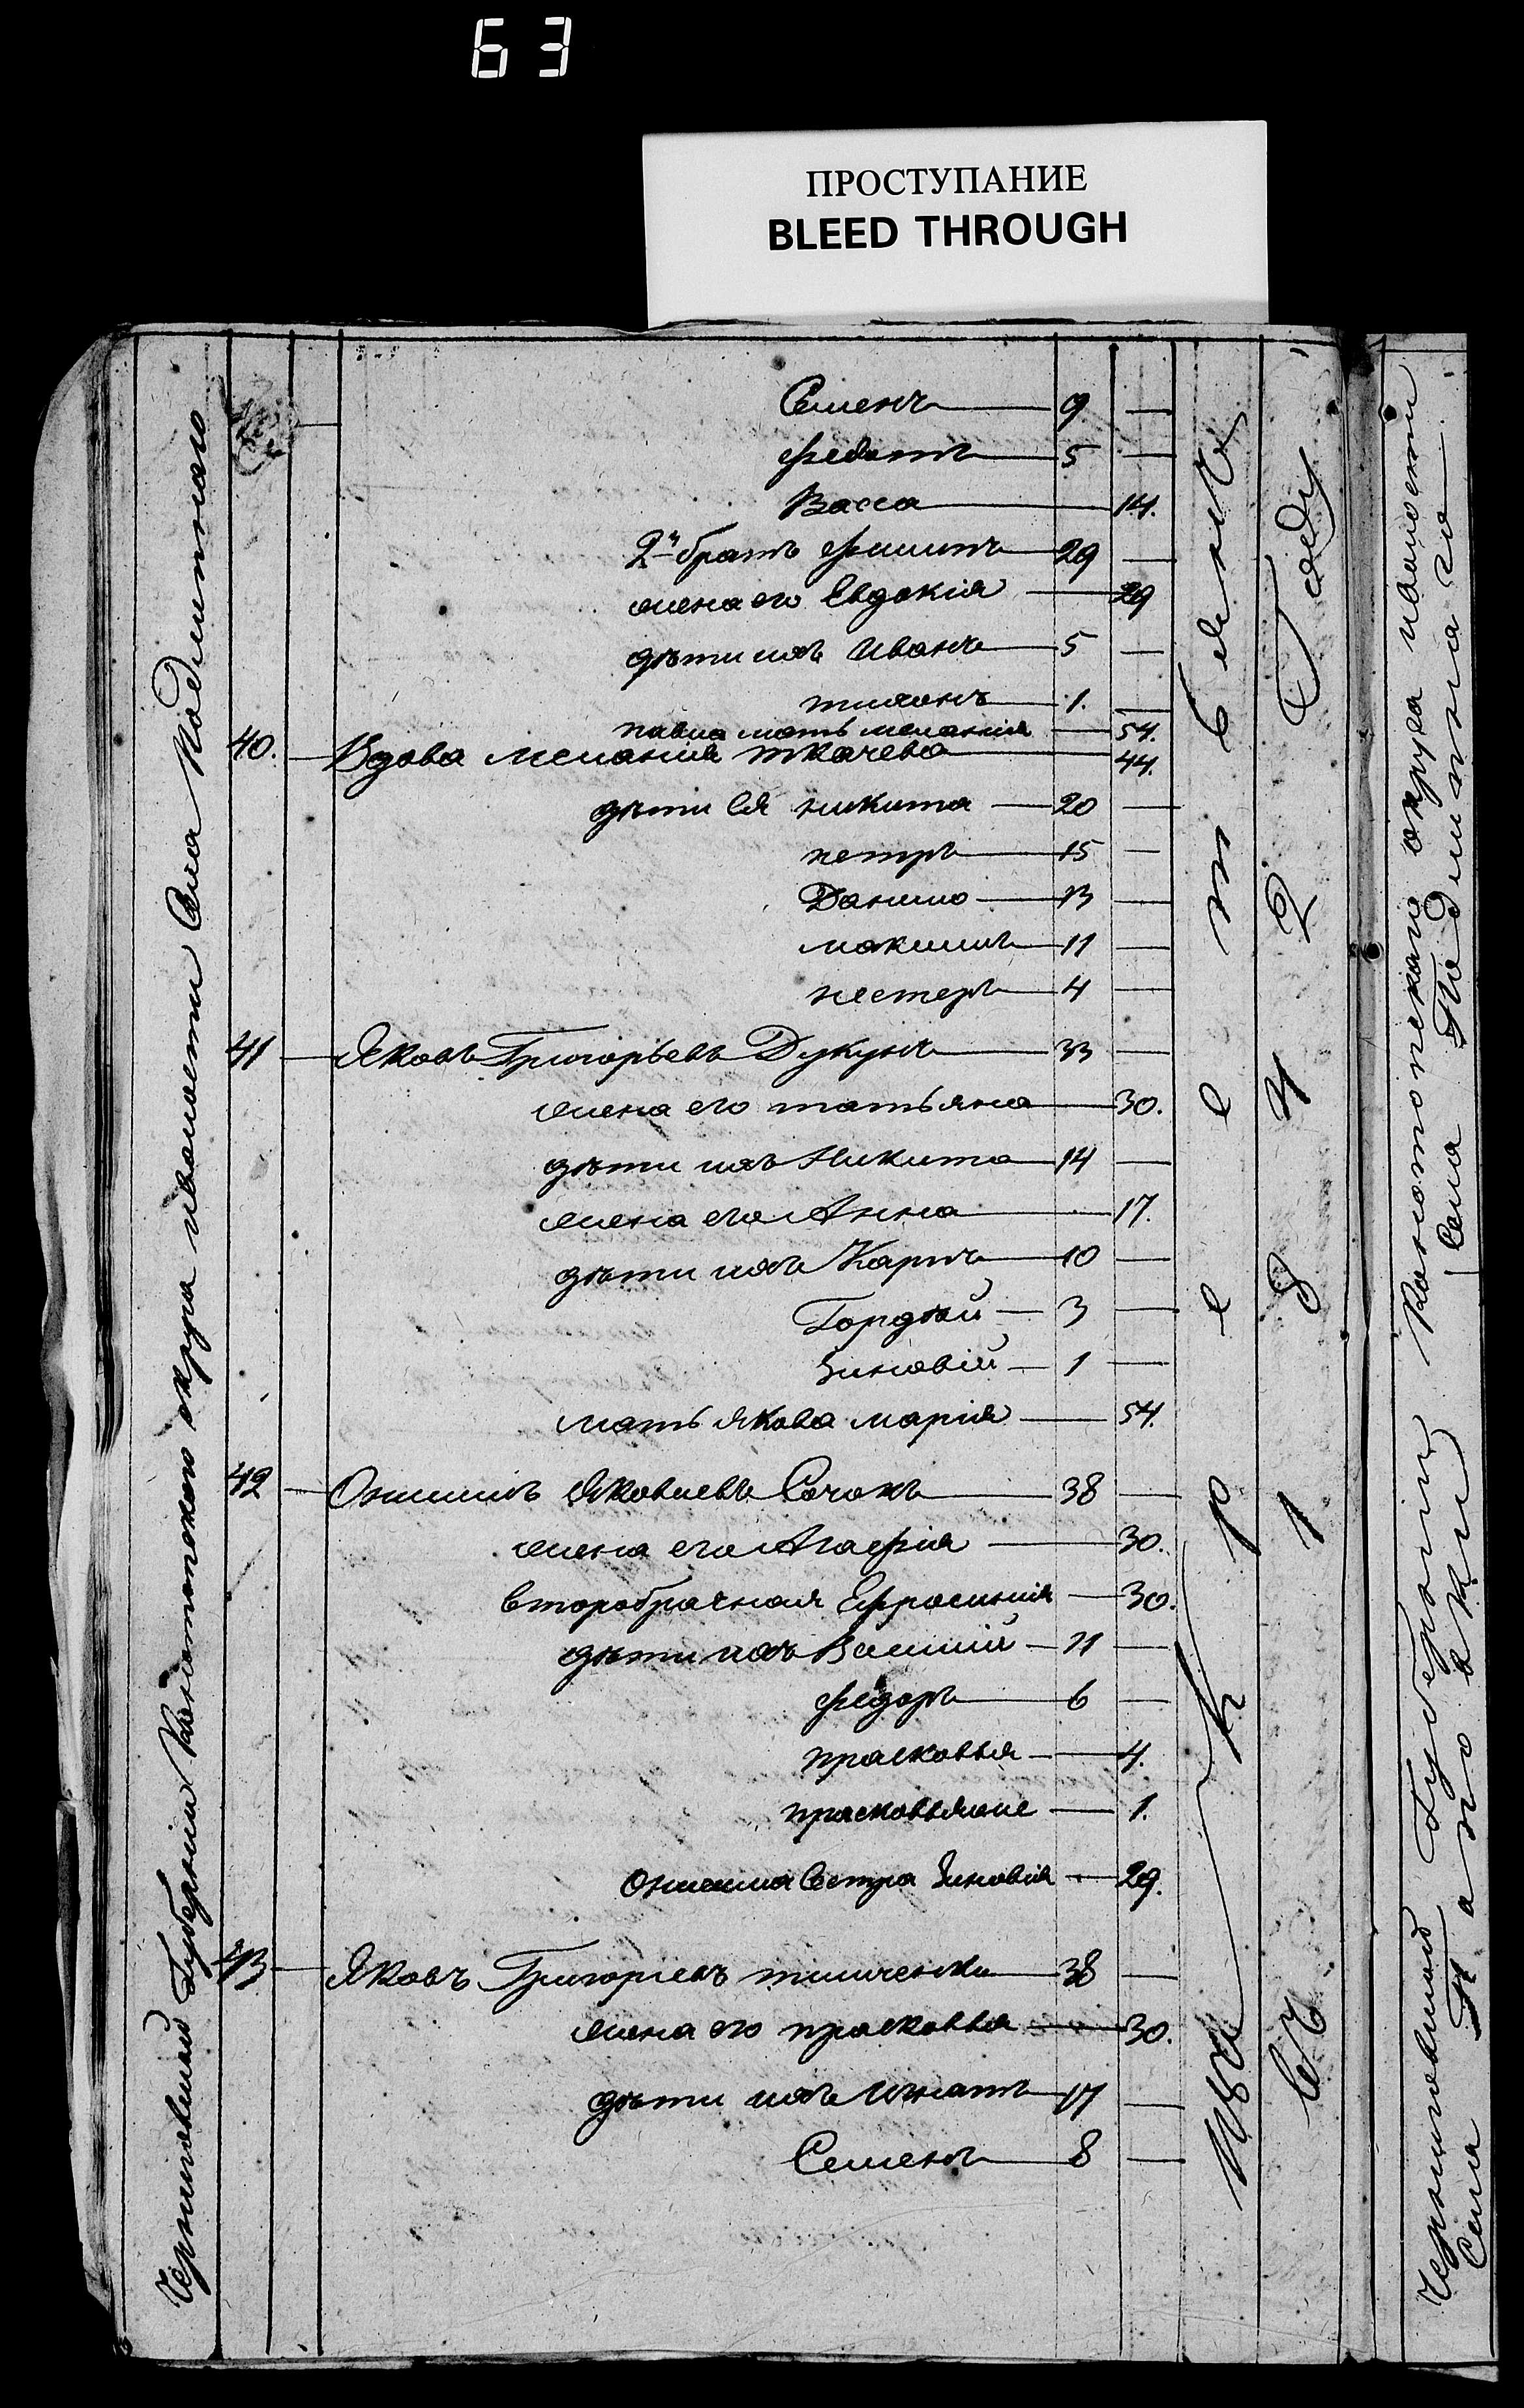 63
ПРОСТУПАНИЕ
BLEED THROUGH
Черниговской Губернии Конотопского округа иволости Села Подлипнаго
Семенъ 9 —
Федотъ 5 —
Васса 14.
2й братъ Филипъ 29 —
жена его Евдокія 29
дѣти ихъ Иванъ 5 —
тихонъ 1. —
павла мать меланія 54.
40. Вдова Меланія ткачева 44.
дѣти Ея никита 20 —
петръ 15 —
Данило 13 —
максимъ 11 —
нестеръ 4 —
41 Яковъ Григорьевъ Дукунъ 33 —
жена его татьяна 30.
дѣти ихъ Никита 14 —
жена его Анна 17.
дѣти ихъ Карпъ 10 —
Гордѣй 3 —
Зиновій 1 —
мать якова марія 54.
42 Онисимъ Яковлевъ Сочокъ 38 —
жена его Агафія 30.
второбрачная Ефросинія 30.
дѣти ихъ Василій 11 —
Федоръ 6 —
прасковья 4.
прасковьяже 1.
Онисима Сестра Зиновія 29.
43 Яковъ Григориевъ тимченко 38 —
жена его прасковья 30.
дѣти ихъ Игнатъ 17 —
Семенъ 8 —
переетбенъ
въ 1842 Году
Черниговской Губерніи Конотопскаго округа иволости
Села Поповки Села Подлипнаго